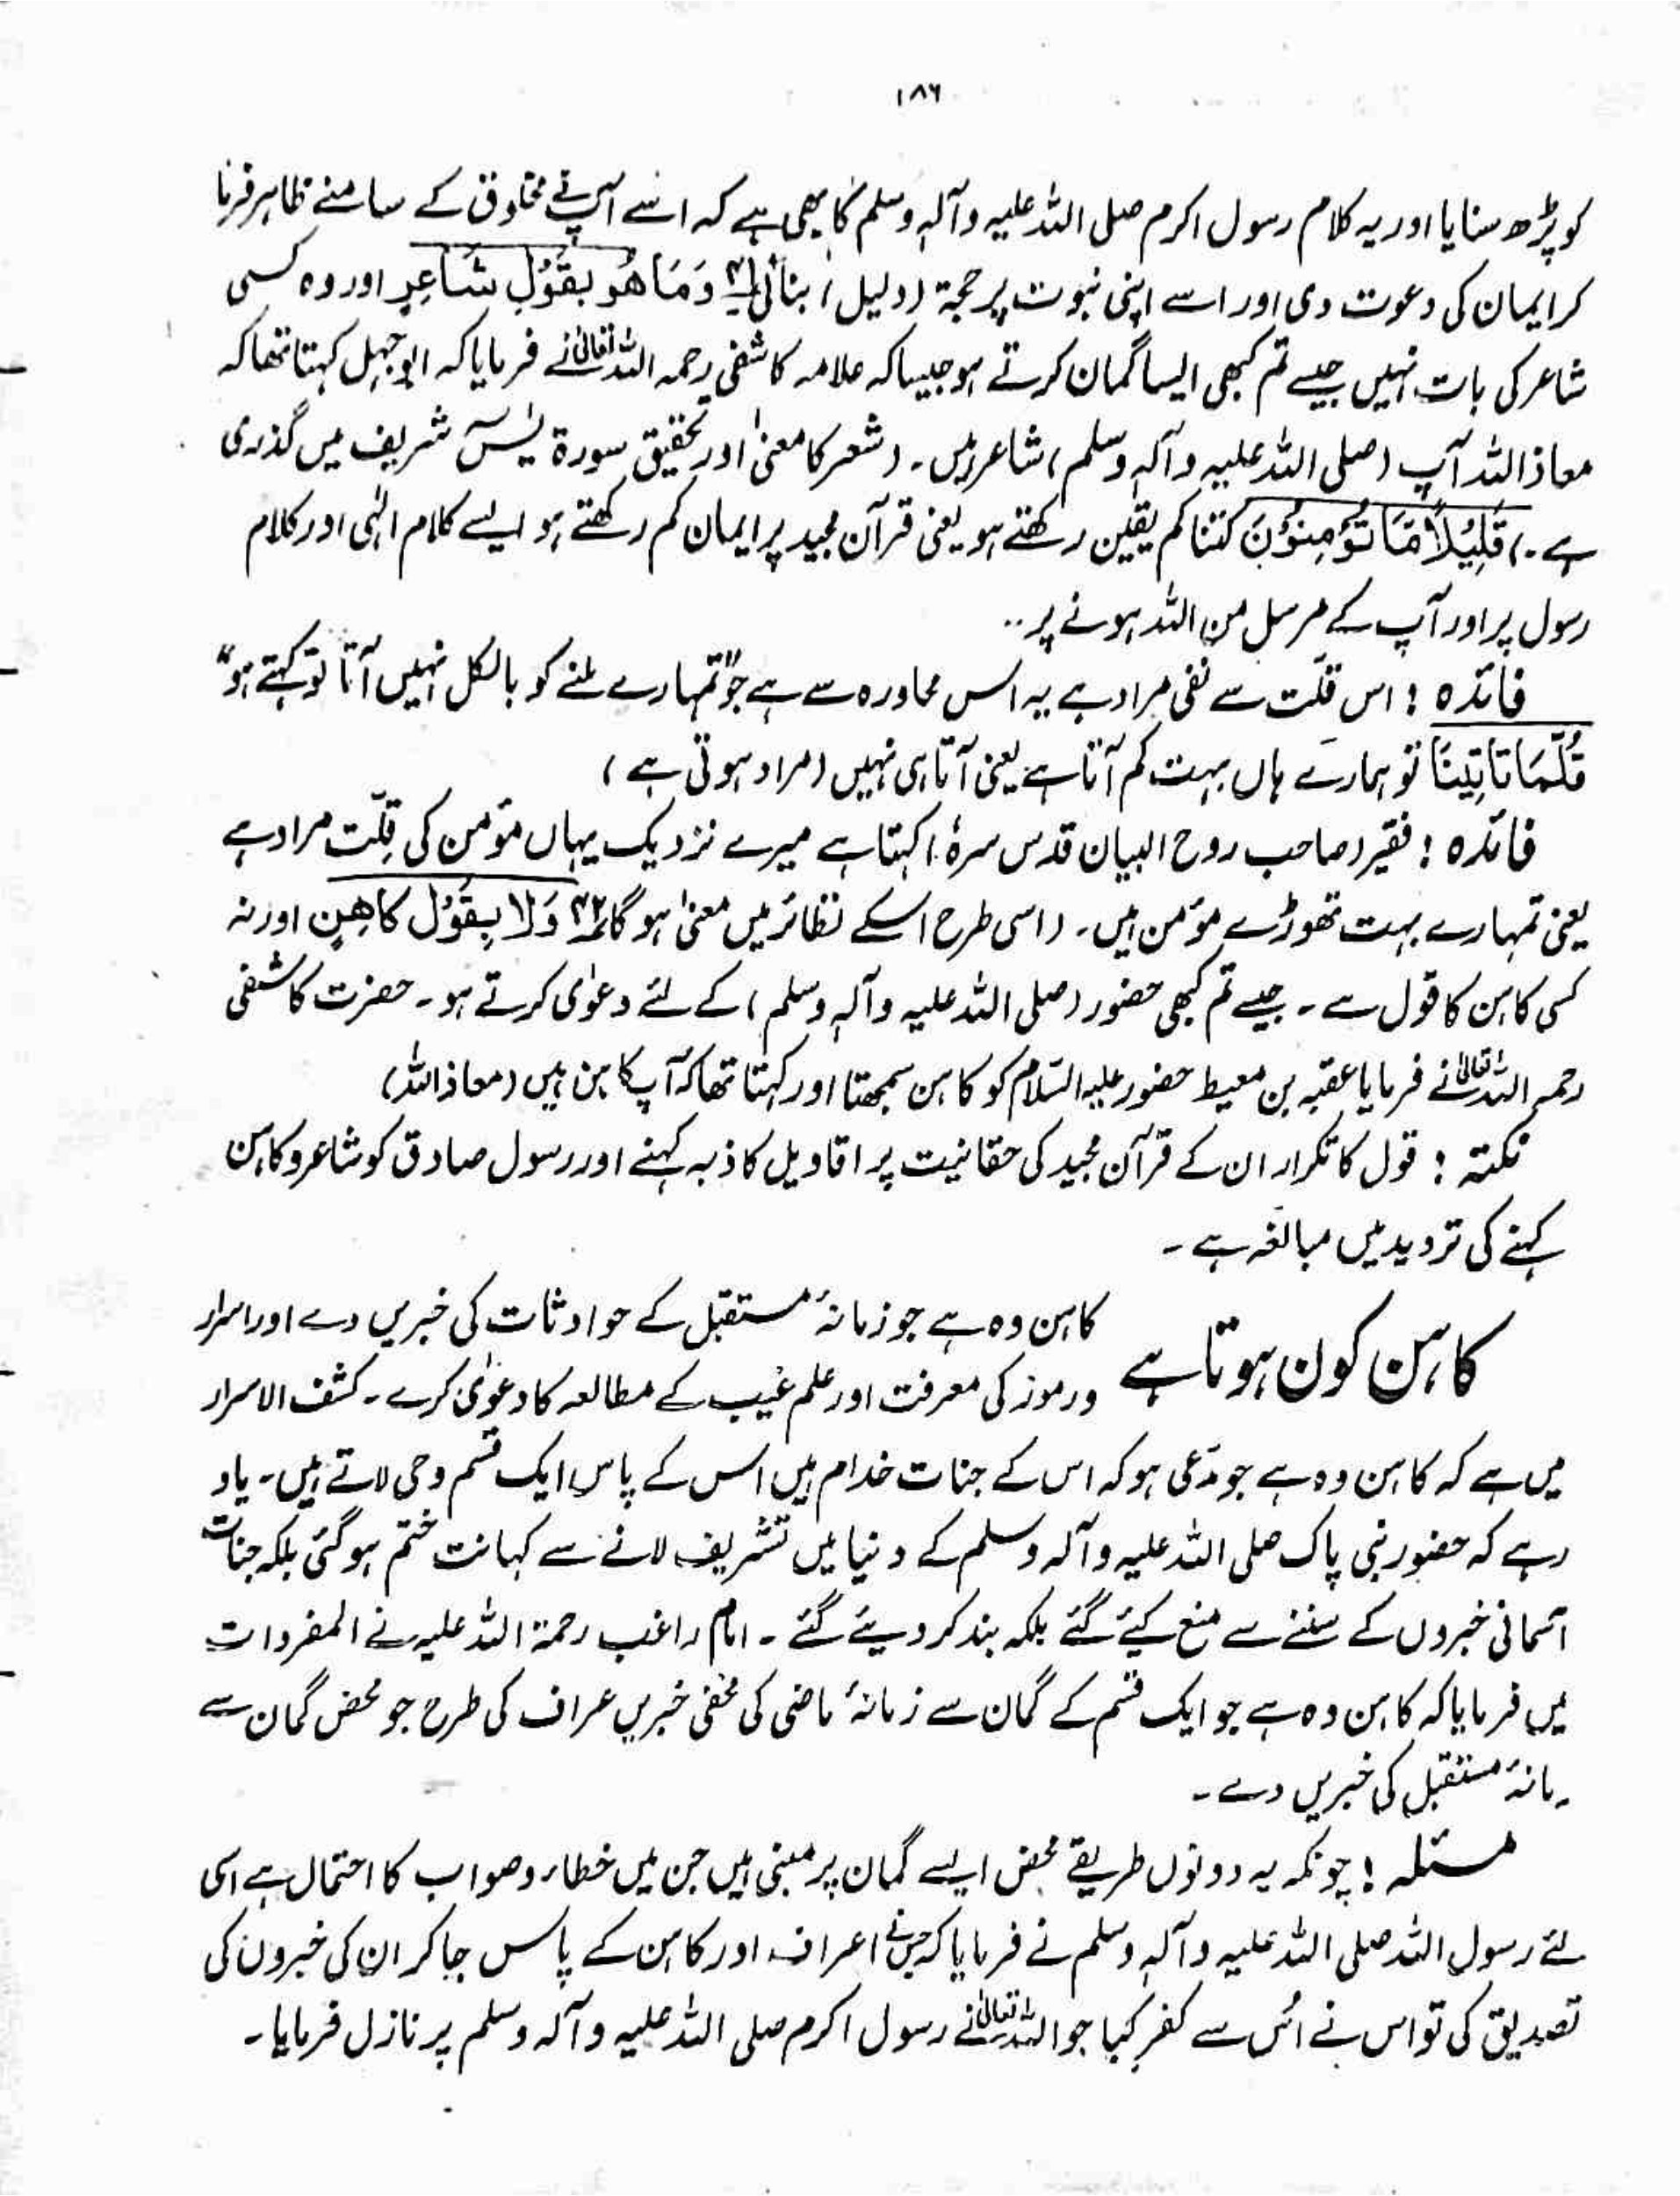 ۱۸۶
کو پڑھ سنایا اور یہ کلام رسول اکرم صلی اللہ علیہ وآلہٖ وسلم کا بھی ہے کہ اسے آپ نے مخلوق کے سامنے ظاہر فرما
کر ایمان کی دعوت دی اور اسے اپنی نبوت پر حجۃ (دلیل) بنائی ۴۱ وَمَا هُوَ بِقَوْلِ شَاعِرٍ اور وہ کسی
شاعر کی بات نہیں جیسے تم کبھی ایسا گمان کرتے ہو جیسا کہ علامہ کاشفی رحمہ اللہ تعالیٰ نے فرمایا کہ ابوجہل کہتا تھا کہ
معاذ اللہ آپ (صلی اللہ علیہ وآلہٖ وسلم) شاعر ہیں۔ (شعر کا معنیٰ اور تحقیق سورۃ یٰسٓ شریف میں گذری
ہے۔) قَلِيْلًا مَّا تُؤْمِنُوْنَ کتنا کم یقین رکھتے ہو یعنی قرآن مجید پر ایمان کم رکھتے ہو ایسے کلام الٰہی اور کلام
رسول پر اور آپ کے مرسل من اللہ ہونے پر..
فائدہ : اس قلّت سے نفی مراد ہے یہ اس محاورہ سے ہے جو "تمہارے ملنے کو بالکل نہیں آتا تو کہتے ہو"
قُلَّمَا تَاتِيْنَا تو ہمارے ہاں بہت کم آتا ہے یعنی آتا ہی نہیں (مراد ہوتی ہے)
فائدہ : فقیر (صاحب روح البیان قدس سرہٗ) کہتا ہے میرے نزدیک یہاں مؤمن کی قلّت مراد ہے
یعنی تمہارے بہت تھوڑے مؤمن ہیں۔ (اسی طرح اسکے نظائر میں معنیٰ ہوگا ۴۲ وَلَا بِقَوْلِ كَاهِنٍ اور نہ
کسی کاہن کا قول ہے۔ جیسے تم کبھی حضور (صلی اللہ علیہ وآلہٖ وسلم) کے لئے دعوٰی کرتے ہو۔ حضرت کاشفی
رحمہ اللہ تعالیٰ نے فرمایا عقبہ بن معیط حضور علیہ السّلام کو کاہن سمجھتا اور کہتا تھا کہ آپ کاہن ہیں (معاذ اللہ)
نکتہ : قول کا تکرار ان کے قرآن مجید کی حقانیت پر اقاویل کاذبہ کہنے اور رسول صادق کو شاعر و کاہن
کہنے کی تردید میں مبالغہ ہے۔
کاہن کون ہوتا ہے
کاہن وہ ہے جو زمانۂ مستقبل کے حوادثات کی خبریں دے اور اسرار
ورموز کی معرفت اور علم غیب کے مطالعہ کا دعوٰی کرے۔ کشف الاسرار
میں ہے کہ کاہن وہ ہے جو مدّعی ہو کہ اس کے جنات خدام ہیں اس کے پاس ایک قسم وحی لاتے ہیں۔ یاد
رہے کہ حضور نبی پاک صلی اللہ علیہ وآلہ وسلم کے دنیا میں تشریف لانے سے کہانت ختم ہوگئی بلکہ جنات
آسمانی خبروں کے سننے سے منع کیئے گئے بلکہ بند کر دیئے گئے۔ امام راغب رحمۃ اللہ علیہ نے المفردات
میں فرمایا کہ کاہن وہ ہے جو ایک قسم کے گمان سے زمانۂ ماضی کی مخفی خبریں عراف کی طرح جو محض گمان سے
مانۂ مستقبل کی خبریں دے۔
مسئلہ : چونکہ یہ دونوں طریقے محض ایسے گمان پر مبنی ہیں جن میں خطاء وصواب کا احتمال ہے اسی
لئے رسول اللہ صلی اللہ علیہ وآلہٖ وسلم نے فرمایا کہ جس نے اعراف اور کاہن کے پاس جا کر ان کی خبروں کی
تصدیق کی تو اس نے اُس سے کفر کیا جو اللہ تعالیٰ نے رسول اکرم صلی اللہ علیہ وآلہ وسلم پر نازل فرمایا۔